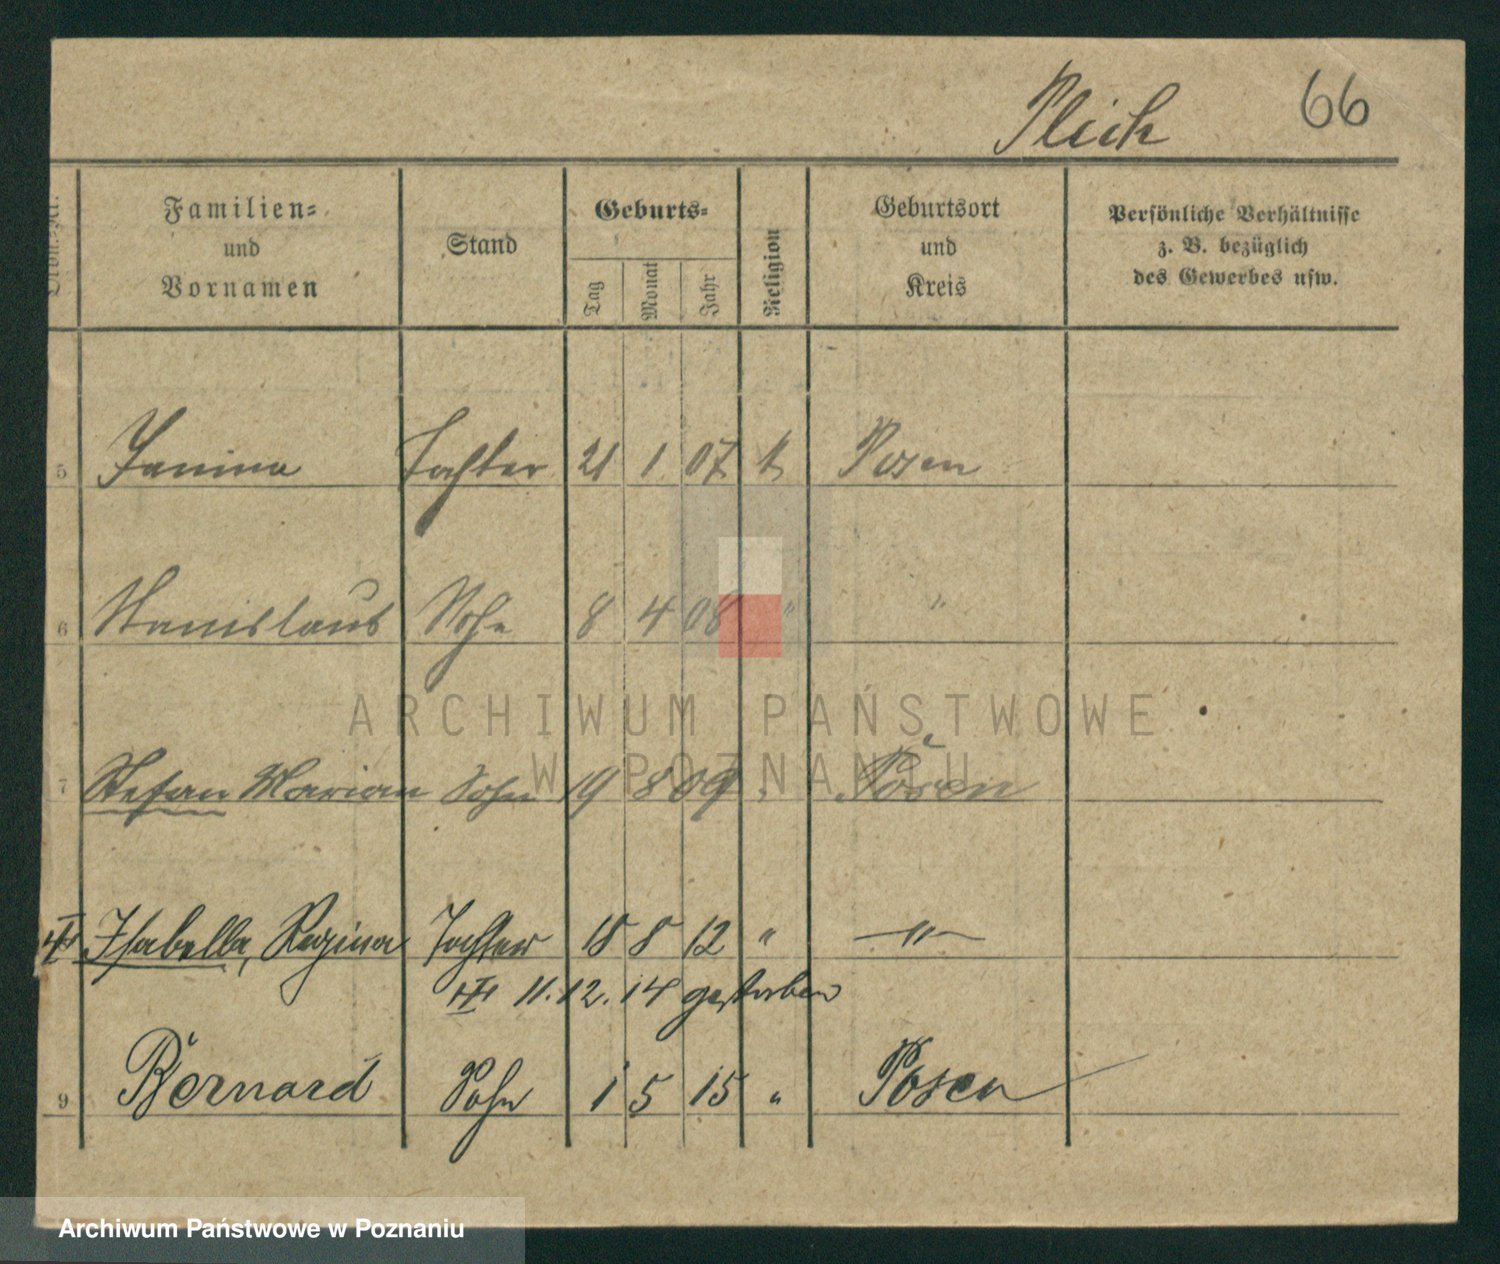 Plich 66
Ordn.-Nr.
Familien-
und
Vornamen
Stand
Geburts-
Tag
Monat
Jahr
Religion
Geburtsort
und
Kreis
Persönliche Verhältnisse
z. B. bezüglich
des Gewerbes usw.
5 Janina Tochter 21 1 07 k Posen
6 Stanislaus Sohn 8 4 08 " "
ARCHIWUM PAŃSTWOWE
W POZNANIU
7 Stefan Marian Sohn 19 8 09 " Posen
Isabella, Regina Tochter 18 8 12 " -"-
11.12.14 gestorben
9 Bernard Sohn 1 5 15 " Posen
Archiwum Państwowe w Poznaniu